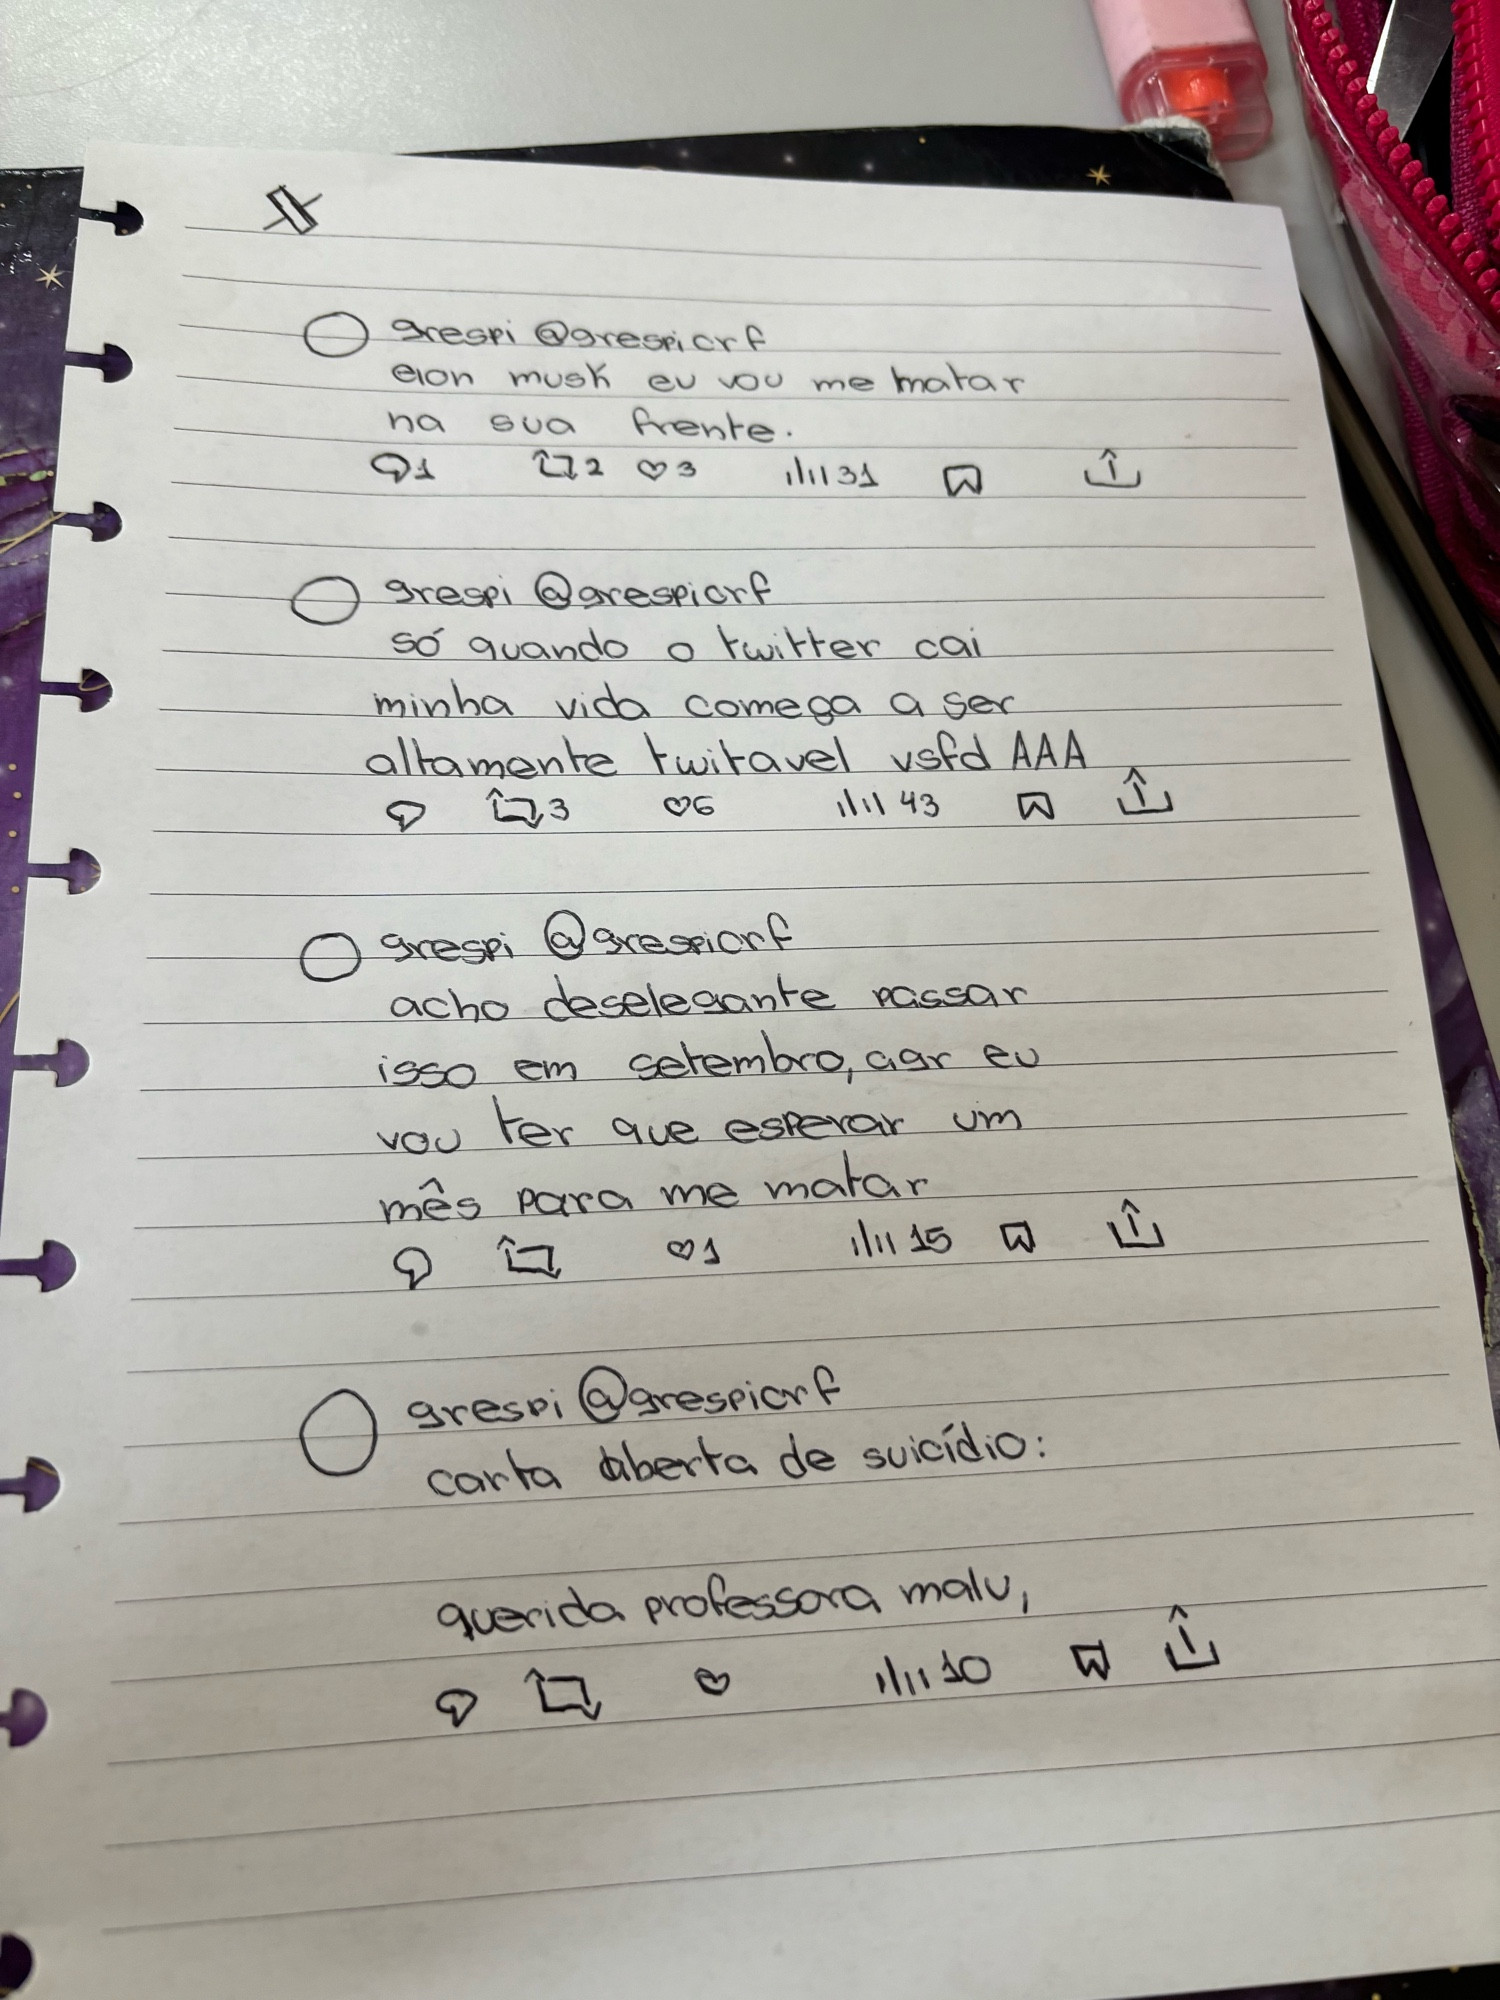 grespi @grespicrf
elon musk eu vou me matar
na sua frente.
1 2 3 31
grespi @grespicrf
só quando o twitter cai
minha vida começa a ser
altamente twitavel vsfd AAA
3 6 43
grespi @grespicrf
acho deselegante passar
isso em setembro, agr eu
vou ter que esperar um
mês para me matar
1 15
grespi @grespicrf
carta aberta de suicídio:
querida professora malu,
10